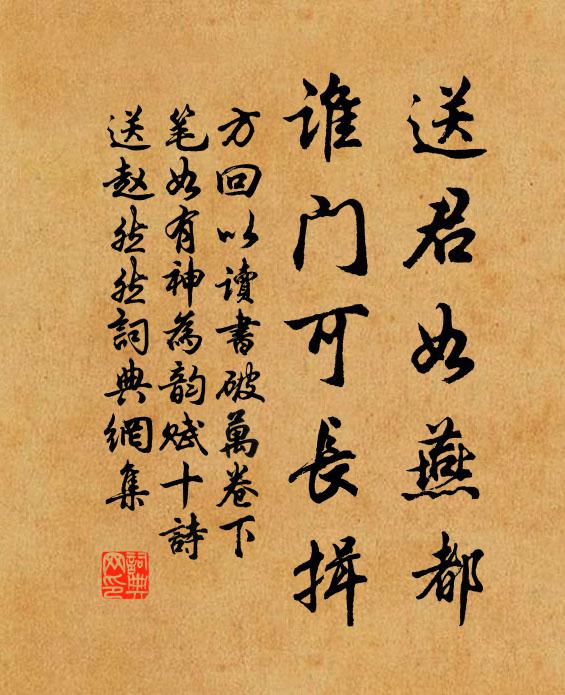 送君如燕都
谁门可長揖
方回以讀書破萬卷下
笔如有神為韵赋十詩
送赵然然詞典網集
詞典
网印